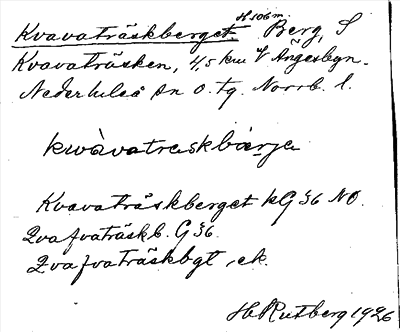 Kvavaträskberget H 106 m. Berg, S
Kvavaträsken, 4,5 km V Ängesbyn.
Nederluleå sn o. tg. Norrb. l.
kwàvatraskbærja
Kvavaträskberget kG 36 NO.
Qvafvaträskb. G 36.
Qvafvaträskbgt, ek.
H. Rutberg 1926